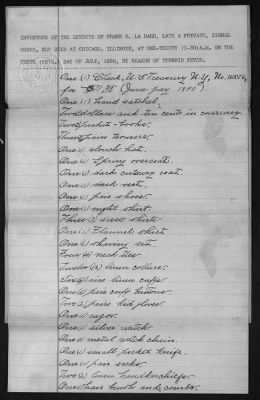 INVENTORY OF THE EFFECTS OF FRANK E. LA BARR, LATE A PRIVATE, SIGNAL
CORPS, WHO DIED AT CHICAGO, ILLINOIS, AT ONE-THIRTY (1-30) A.M. ON THE
TENTH (10th) DAY OF JULY, 1890, BY REASON OF TYPHOID FEVER.
One (1) Check, U.S. Treasury N.Y., No.
for (June pay 1890).
One (1) hand satchel.
Two dollars and ten cents in currency
Two (2) pocket-books.
Three pairs trousers.
One (1) slouch hat.
One (1) Spring overcoat.
One (1) dark cutaway coat.
One (1) dark vest.
One (1) pair shoes.
One (1) night shirt
Three (3) dress shirts
One (1) Flannel shirt
One (1) shaving
Four (4) neck ties
Twelve (12) linen collars.
pairs linen cuffs.
One (1) pair cuff buttons
Two (2) pairs kid gloves.
One (1) razor.
One (1) silver watch
One (1) metal watch chain.
One (1) small pocket knife.
One (1) pair socks.
Two (2) linen handkerchiefs.
One (1) hair brush and combs.